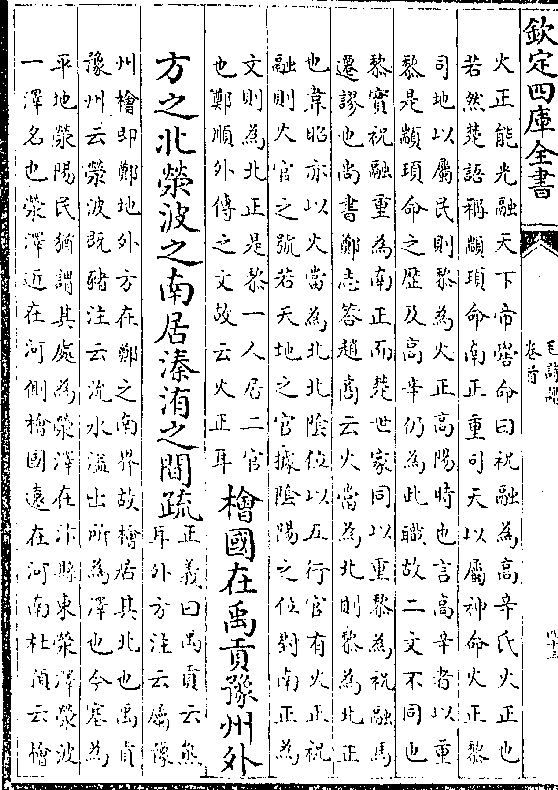 欽定四庫全書
毛詩疏
卷首
火正能光融天下帝嚳命曰祝融為高辛氏火正也
若然楚語稱顓頊命南正重司天以屬神命火正黎
司地以屬民則黎為火正高陽時也言高辛者以重
黎是顓頊命之歷及高辛仍為此職故二文不同也
黎實祝融重為南正而楚世家同以重黎為祝融馬
遷謬也尚書鄭志答趙商云火當為北則黎為北正
也韋昭亦以火當為北北陰位以五行官有火正祝
融則火官之號若天地之官據陰陽之位對南正為
文則為北正是黎一人居二官
也鄭順外傳之文故云火正耳
檜國在禹貢豫州外
方之北滎波之南居溱洧之間疏
正義曰禹貢云熊
耳外方注云屬豫
州檜即鄭地外方在鄭之南界故檜居其北也禹貢
豫州云滎波既豬注云沇水溢出所為澤也今塞為
平地滎陽民猶謂其處為滎澤在汴縣東滎澤滎波
一澤名也滎澤近在河側檜國遠在河南杜預云檜